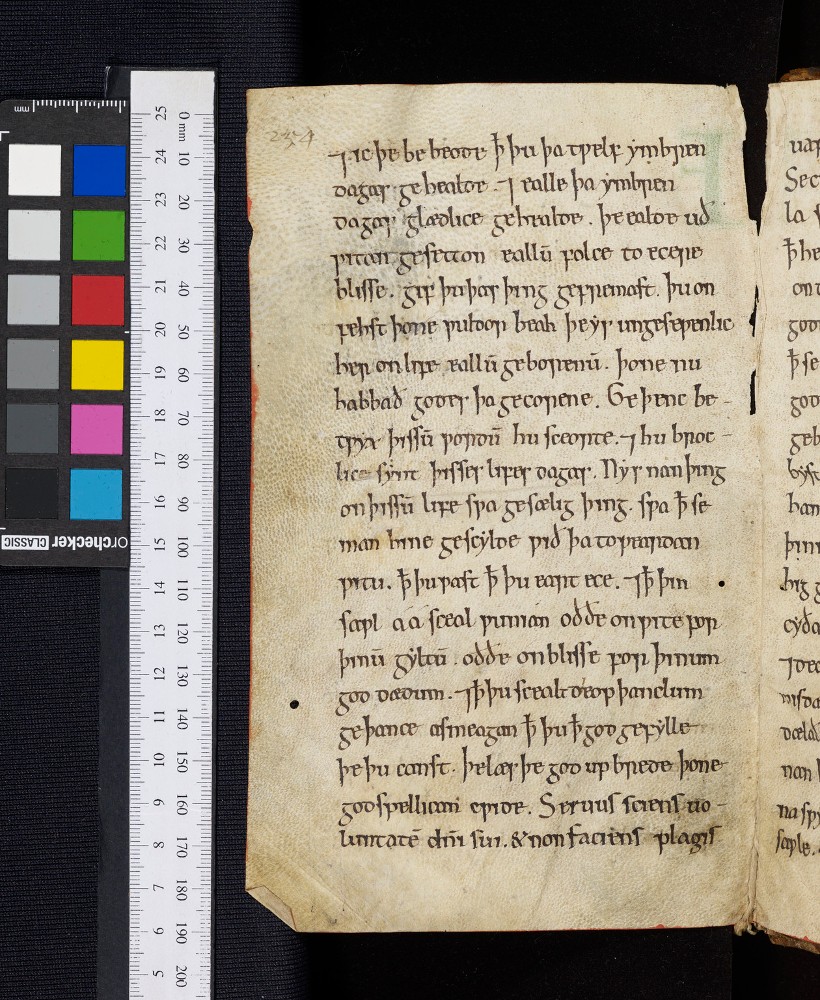 234
⁊ic þe be beode ꝥ þu þa twelf ymbren
dagas ge healde. ⁊ ealle þa ymbren
dagas glædlice gehealde. þe ealde ud
witan gesetton eallū folce to ecere
blisse. gif þu þas þing gefremast. þu on
fehst þone wuldor beah þe ys ungesewenlic
her on life eallū geborenū. þone nu
habbað godes þa gecorene. Geþenc be-
twyx þissū wordū hu sceorte. ⁊ hu broc-
lice synt þisses lifes dagas. Nys nan þing
on þissū life swa gesælig þing. swa ꝥ se
man hine gescylde wið þa toweardan
witu. ꝥ þu wast ꝥ þu eart ece. ⁊ ꝥ þin
sawl a á sceal wunian oððe on wite for
þinū gyltū. oððe on blisse for þinum
god dædum. ⁊ ꝥ þu scealt deop þanclum
geþance asmeagan ꝥ þu ꝥ god gefylle
þe þu canst. þelæs þe god up brede þone
godspellican cwide. Seruus sciens uo-
luntatē dn̄i sui. & non faciens plagis
uas
Sec
la s
ꝥ he
on
god
ꝥ se
god
geb
bys
han
þin
big g
cyða
nan
na spy
saple.